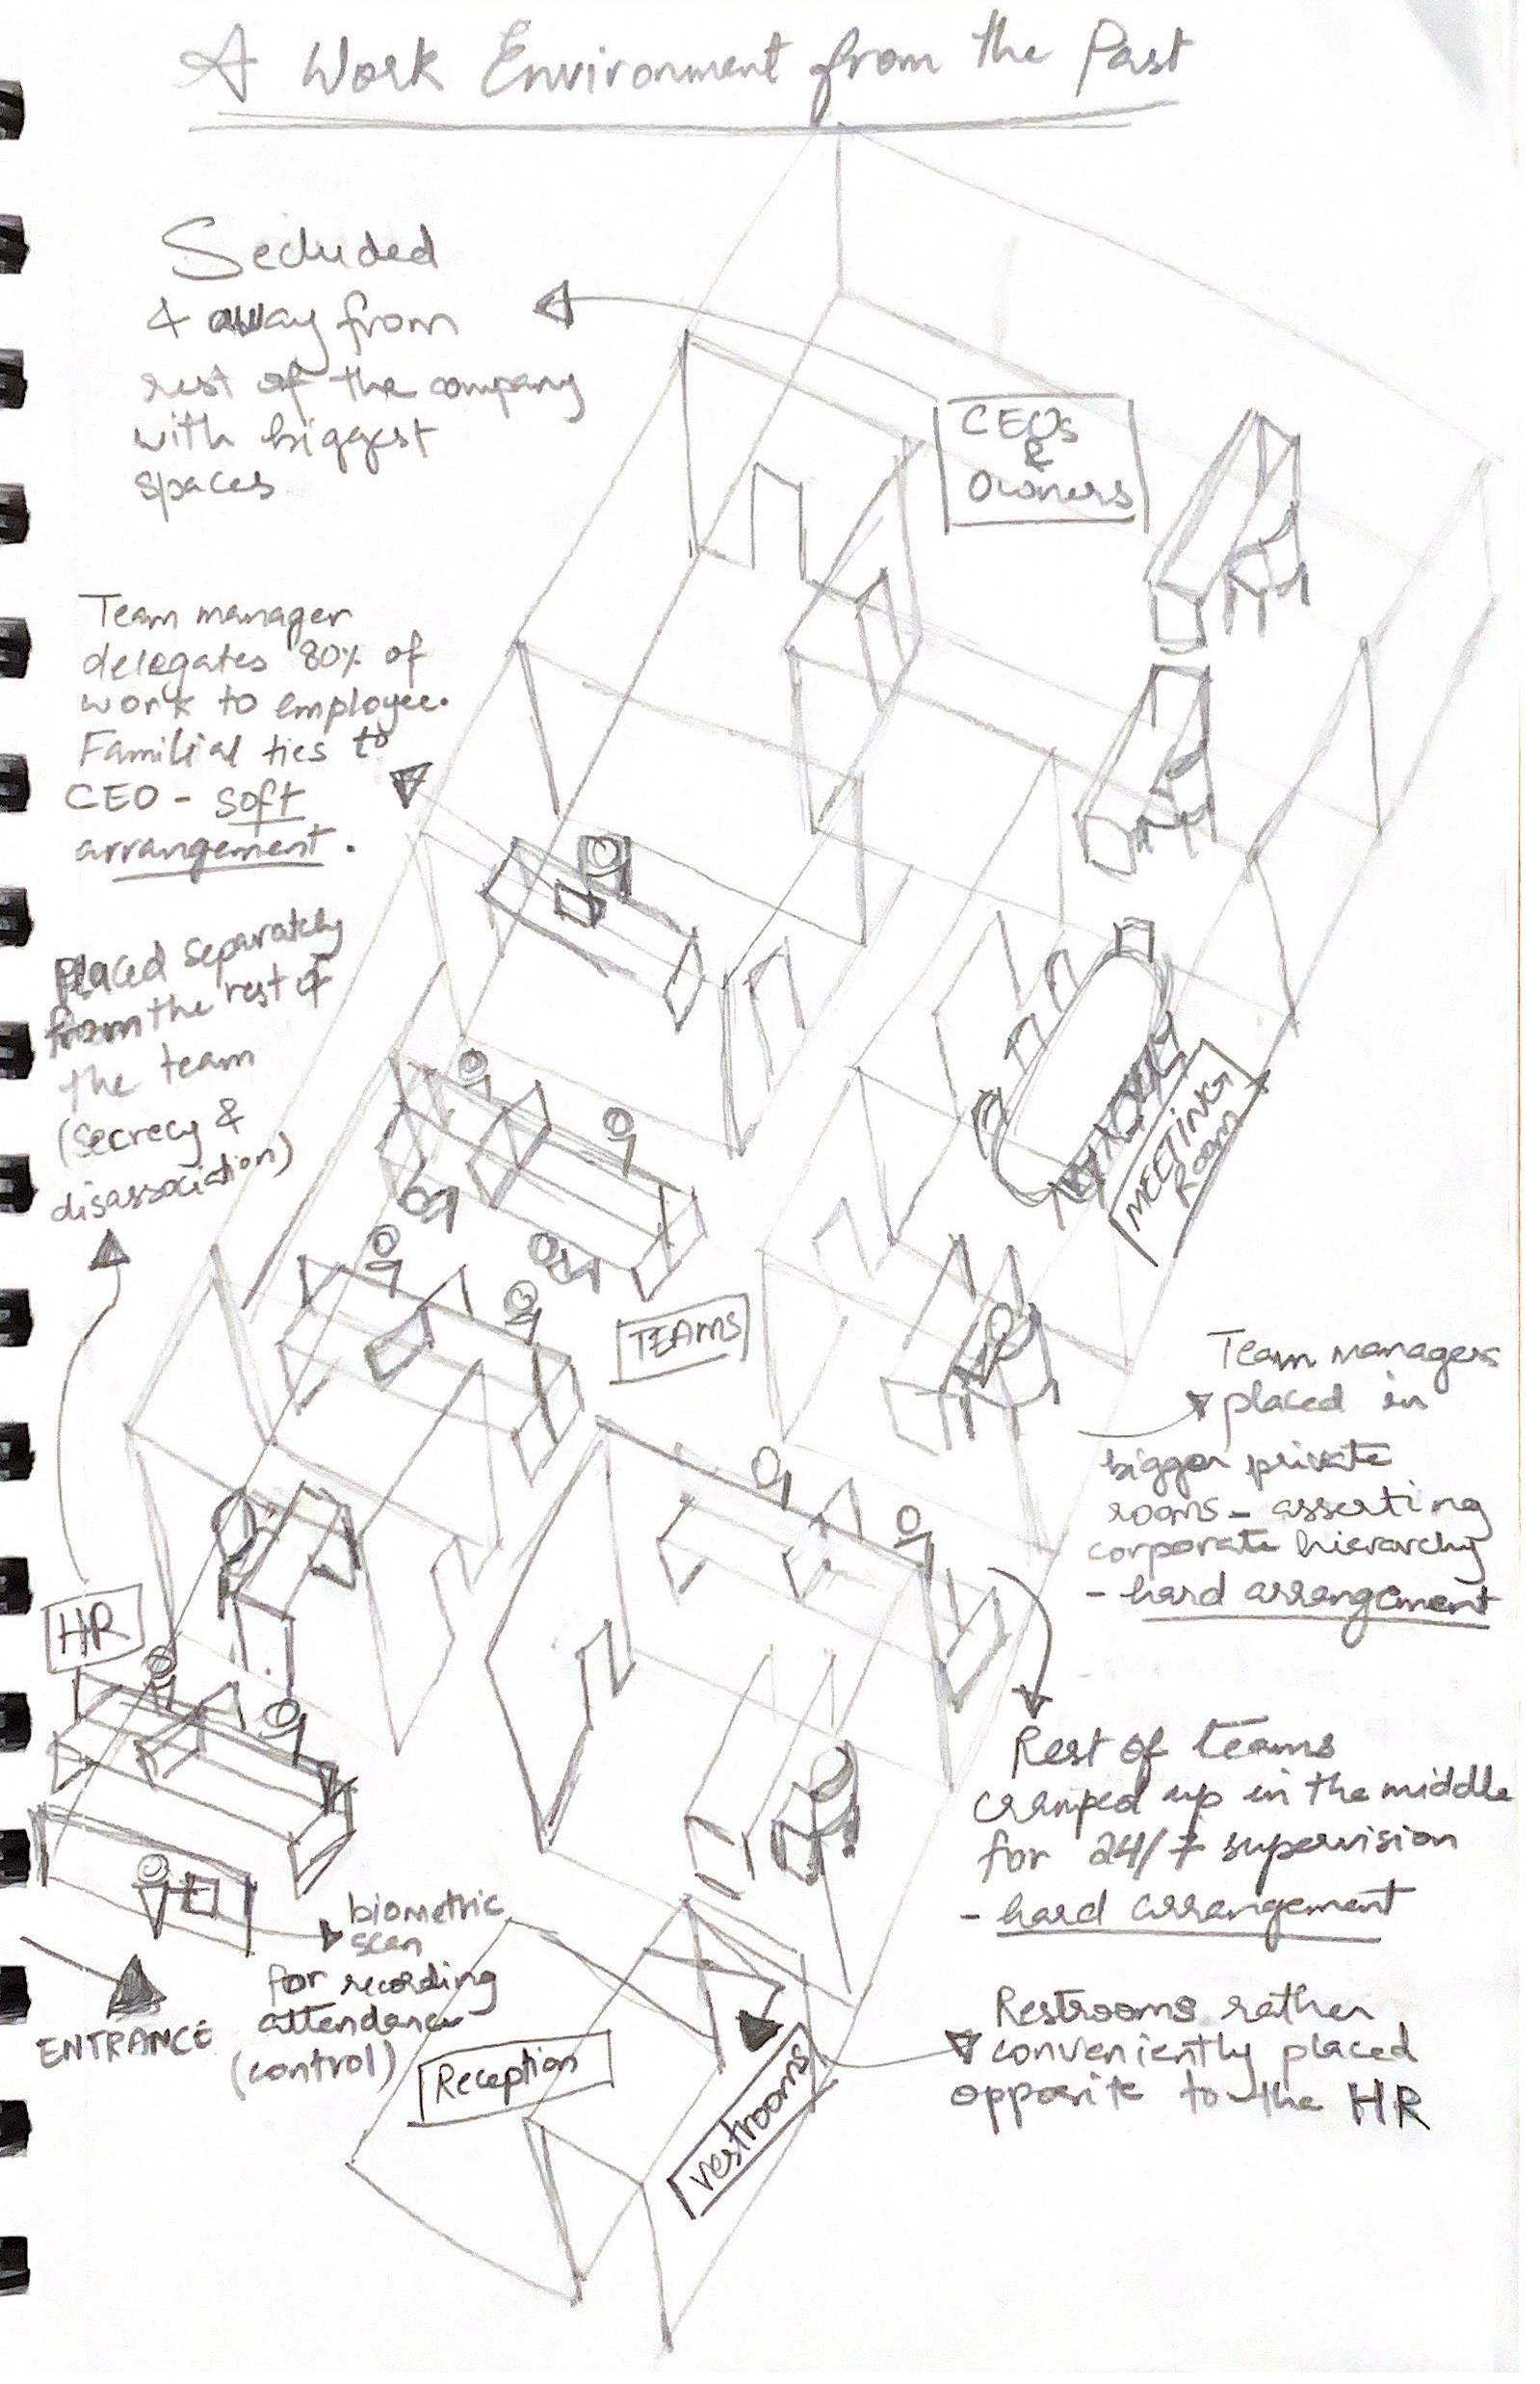 A Work Environment from the Past
Secluded
& away from
rest of the company
with biggest
spaces
CEOs
&
Owners
Team manager
delegates 80% of
work to employee.
Familial ties to
CEO - soft
arrangement.
Placed separately
from the rest of
the team
(secrecy &
disassociation)
MEETING
Room
TEAMS
Team managers
placed in
bigger private
rooms - asserting
corporate hierarchy
- hard arrangement
HR
Rest of teams
cramped up in the middle
for 24/7 supervision
- hard arrangement
biometric
scan
for recording
attendance
(control)
ENTRANCE
Reception
restrooms
Restrooms rather
conveniently placed
opposite to the HR